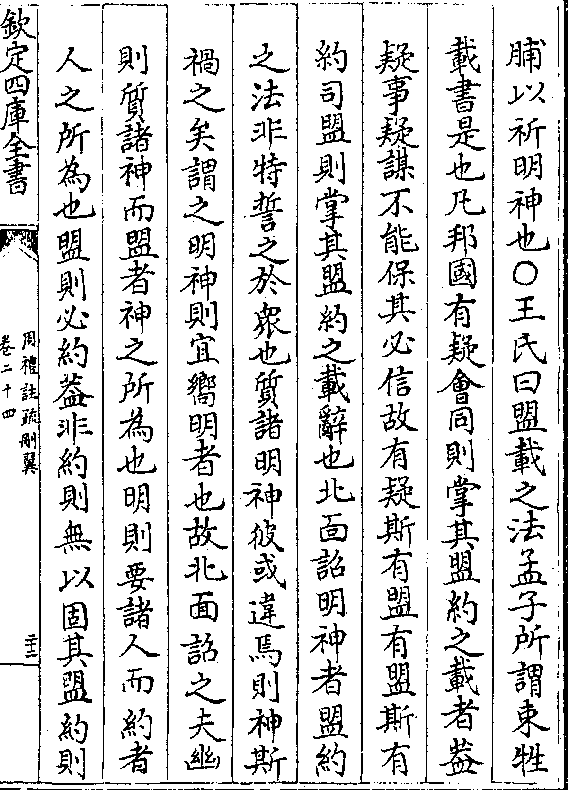 脯以祈明神也○王氏曰盟載之法孟子所謂束牲
載書是也凡邦國有疑會同則掌其盟約之載者葢
疑事疑謀不能保其必信故有疑斯有盟有盟斯有
約司盟則掌其盟約之載辭也北面詔明神者盟約
之法非特誓之於衆也質諸明神彼或違焉則神斯
禍之矣謂之明神則宜嚮明者也故北面詔之夫幽
則質諸神而盟者神之所為也明則要諸人而約者
人之所為也盟則必約葢非約則無以固其盟約則
欽定四庫全書
周禮註疏刪翼
卷二十四
二十二